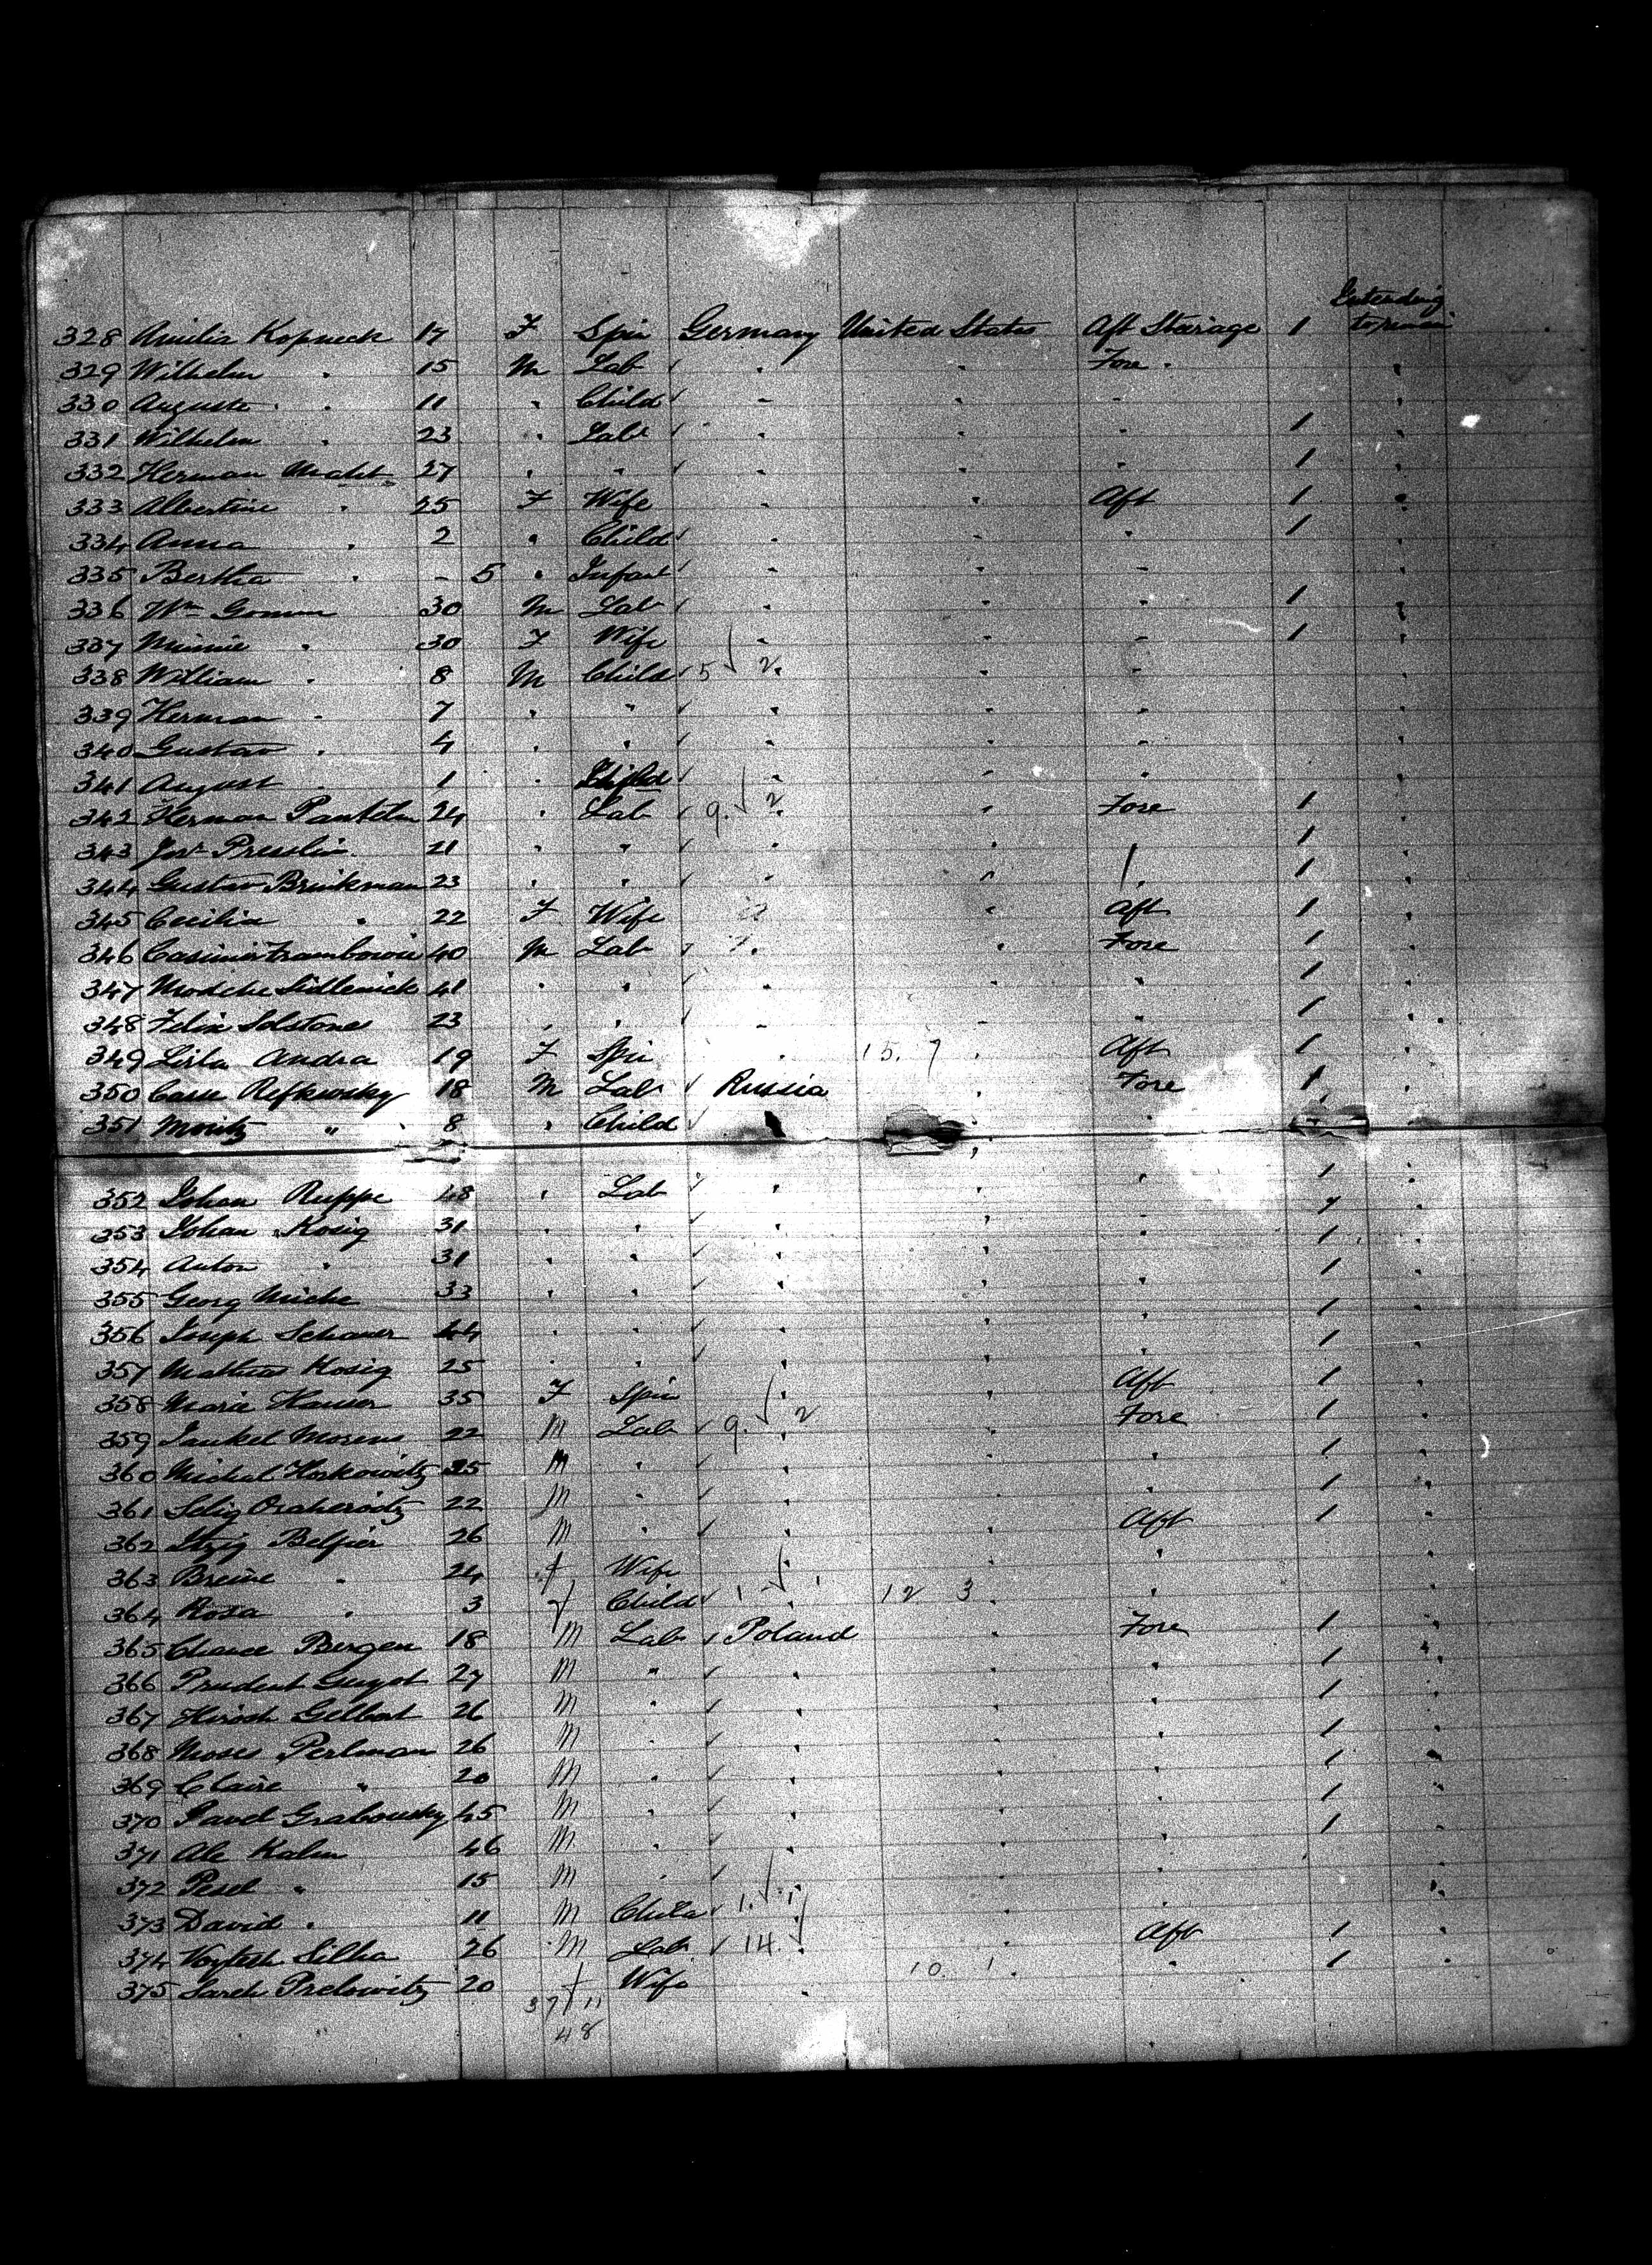 Intending
328 Amilia Kopneck 17 F Spin Germany United States Aft Stairage 1 to remain
329 Wilhelm " 15 M Lab " " Fore "
330 Auguste " 11 " Child " " " "
331 Wilhelm " 23 " Lab " " " 1 "
332 Herman 27 " " " " " 1 "
333 Albertine " 25 F Wife " " Aft 1 "
334 Anna " 2 " Child " " " 1 "
335 Bertha " - 5 " Infant " " " "
336 Wm Gomm 30 M Lab " " " 1 "
337 Minnie " 30 F Wife " " " 1 "
338 William " 8 M Child 5 2 " " "
339 Herman " 7 " " " " " "
340 Gustav " 4 " " " " " "
341 August 1 " " " " "
342 Herman 24 " Lab 9 2 " Fore 1 "
343 Jos. Presslin 21 " " " " 1 "
344 Gustav Brinkman 23 " " " " 1 "
345 Cecilia " 22 F Wife " Aft 1 "
346 Casimir 40 M Lab " Fore 1 "
347 41 " " " " " 1 "
348 Felix Solstone 23 " " " " " 1 "
349 Andra 19 F Spin " 15. 7 Aft 1 "
350 Refkowsky 18 M Lab Russia " Fore 1 "
351 Moritz " 8 " Child " "
352 Johan Ruppe 48 " Lab " " " 1 "
353 Johan Kosig 31 " " " " " 1 "
354 Anton " 31 " " " " " 1 "
355 Georg Miche 33 " " " " " 1 "
356 Joseph Schauer 44 " " " " " 1 "
357 Mathias Kosig 25 " " " " " 1 "
358 Marie Hauser 35 F Spin " " Aft 1 "
359 Jankel Morens 22 M Lab 9. 2 " Fore 1 "
360 Michal Horkowitz 25 M " " " " 1 "
361 Selig 22 M " " " " 1 "
362 Itzig Belfier 26 M " " " Aft 1 "
363 Breine " 24 f Wife " " "
364 Rosa " 3 f Child 1 1 12 3 "
365 Bergen 18 M Lab Poland " Fore 1 "
366 Prudent Guyot 27 M " " " " 1 "
367 Hirsch Gelbart 26 M " " " " 1 "
368 Moses Perlman 26 M " " " " 1 "
369 Claire " 20 M " " " " 1 "
370 Pavel Grabowsky 45 M " " " " 1 "
371 Ale Kalm 46 M " " " " 1 "
372 Pesel " 15 M " " " " "
373 David " 11 M Child 1. 1 " " "
374 Silka 26 M Lab 14. " Aft 1 "
375 Sareh Prelowitz 20 f Wife 10 1 " 1 "
37 / 11
48